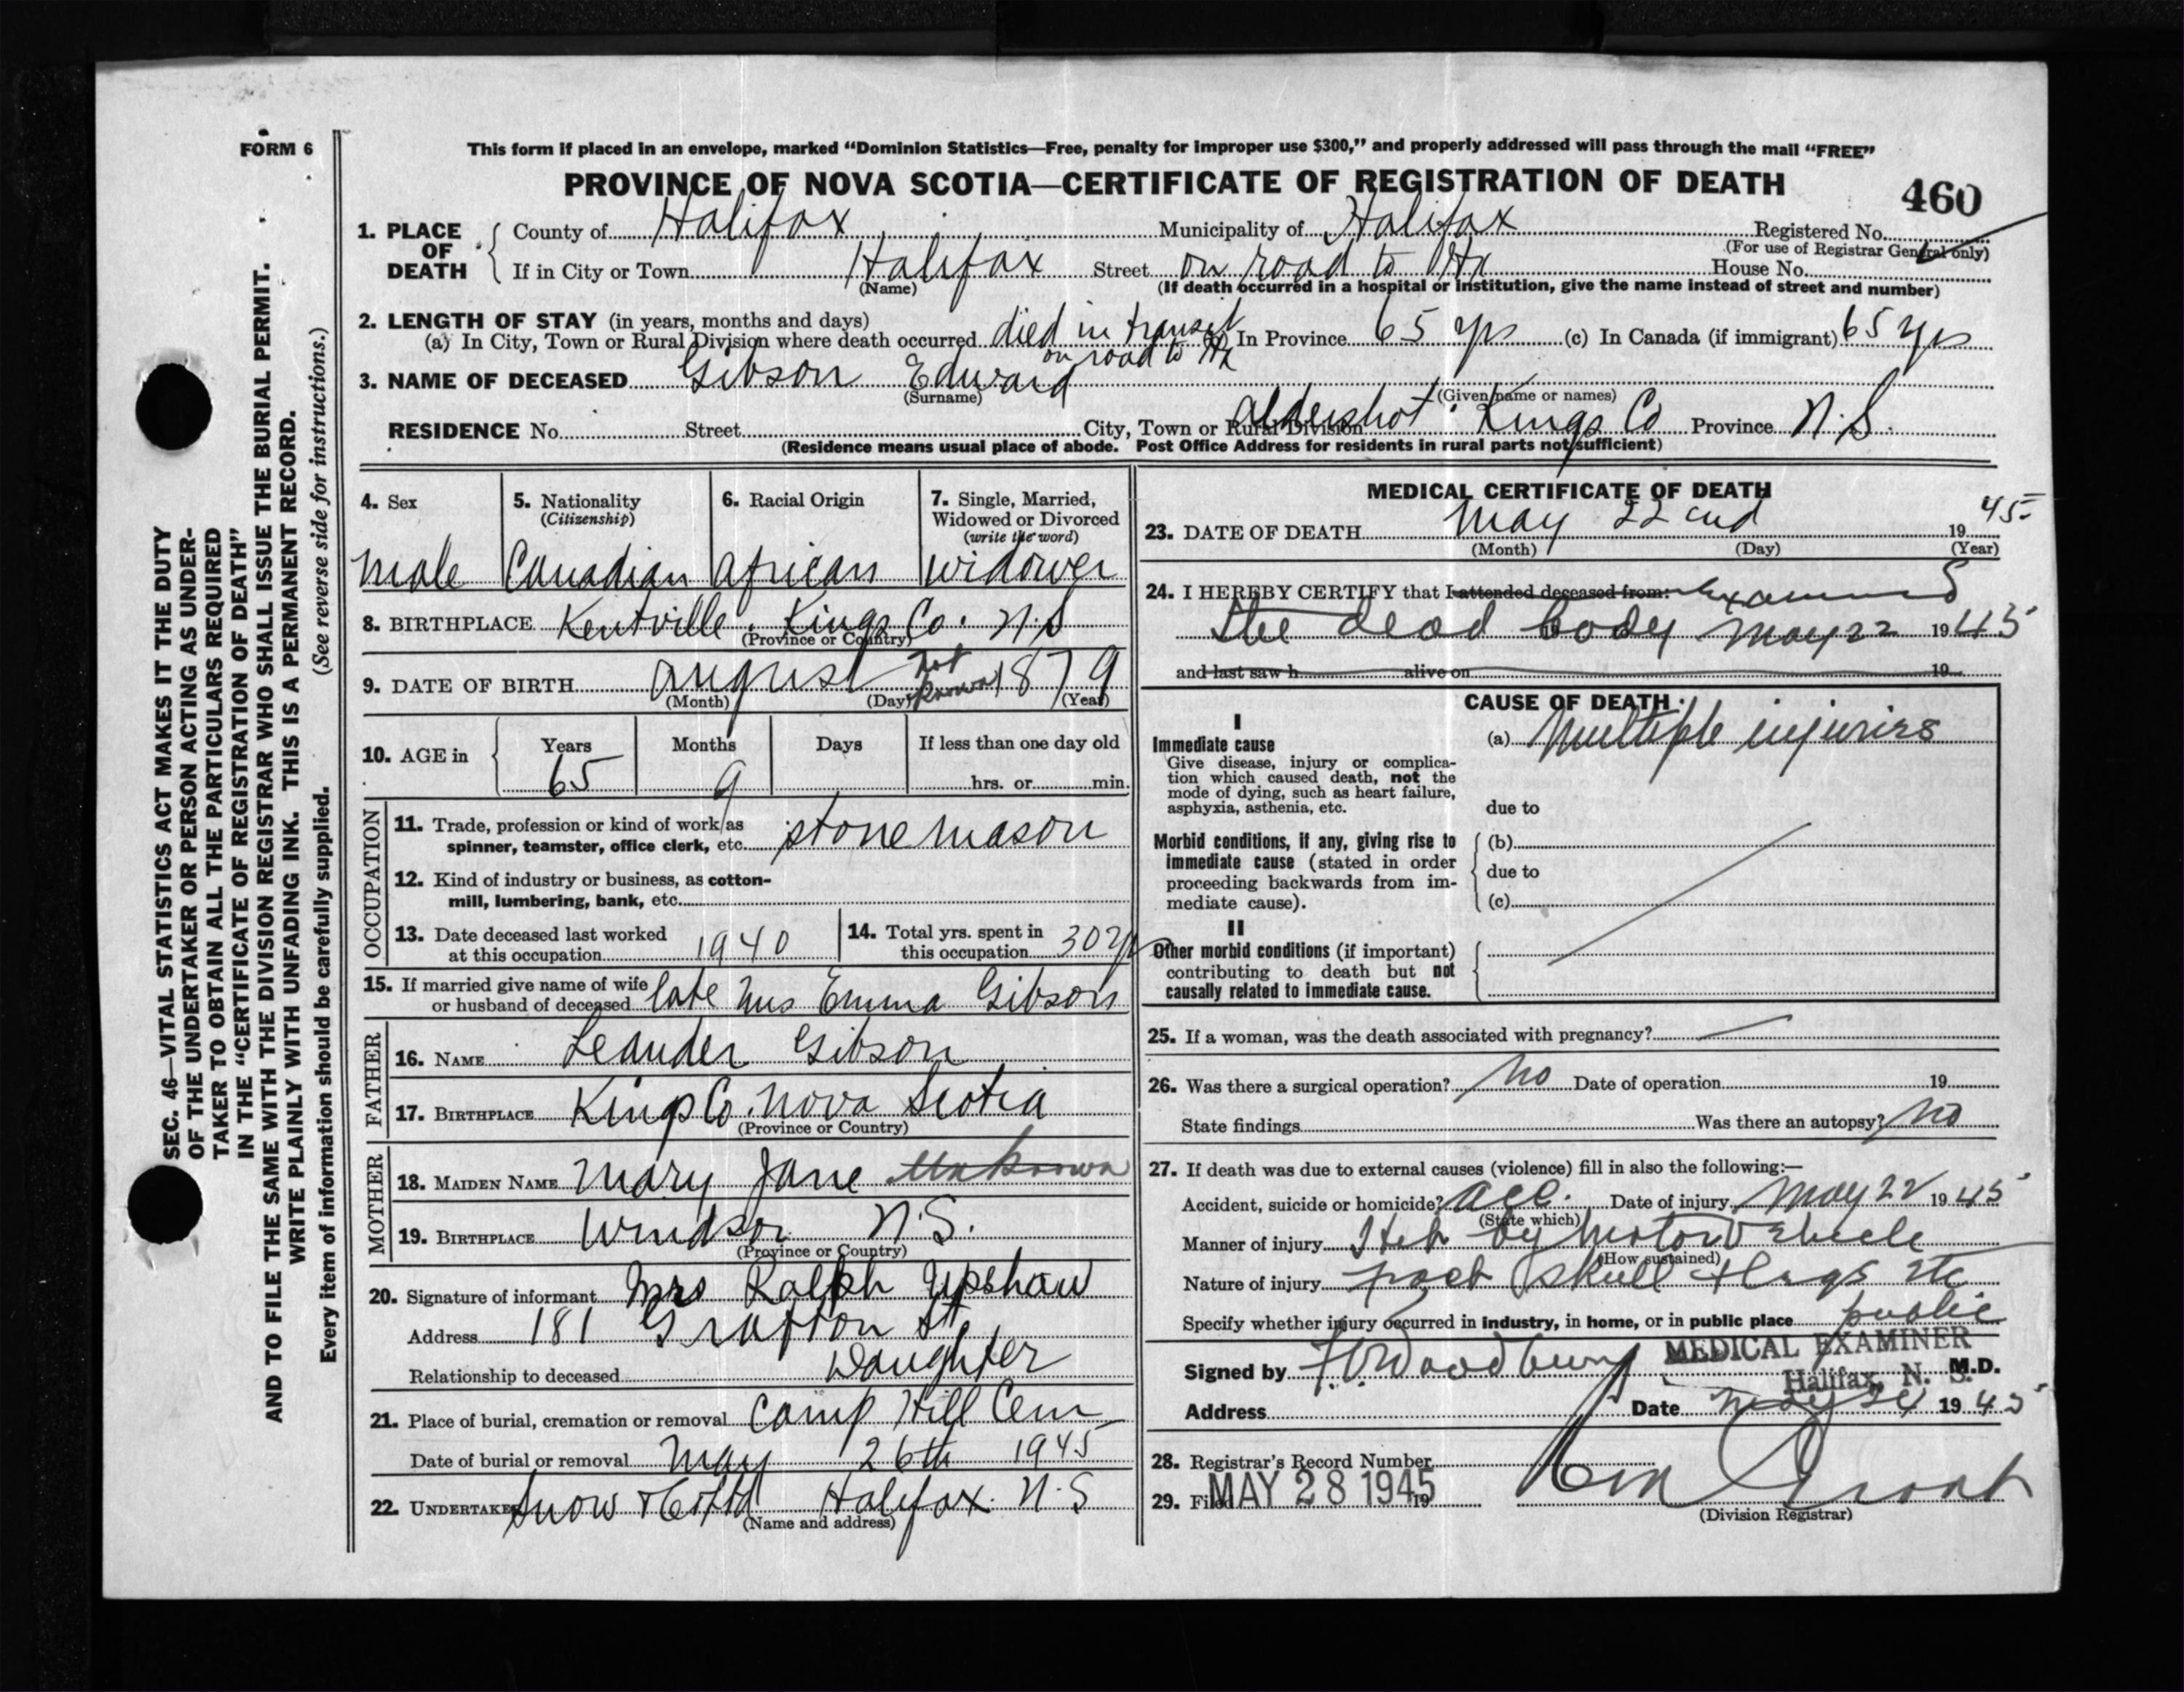 FORM 6
This form if placed in an envelope, marked "Dominion Statistics—Free, penalty for improper use $300," and properly addressed will pass through the mail "FREE"
PROVINCE OF NOVA SCOTIA—CERTIFICATE OF REGISTRATION OF DEATH
460
1. PLACE OF DEATH County of Halifax Municipality of Halifax Registered No.
(For use of Registrar General only)
If in City or Town Halifax Street on road to Hx House No.
(Name) (If death occurred in a hospital or institution, give the name instead of street and number)
2. LENGTH OF STAY (in years, months and days)
(a) In City, Town or Rural Division where death occurred died in transit on road to Hx (b) In Province 65 yrs (c) In Canada (if immigrant) 65 yrs
3. NAME OF DECEASED Gibson Edward
(Surname) (Given name or names)
RESIDENCE No. Street City, Town or Rural Division Aldershot Kings Co Province N.S.
(Residence means usual place of abode. Post Office Address for residents in rural parts not sufficient)
4. Sex
male
5. Nationality
(Citizenship)
Canadian
6. Racial Origin
African
7. Single, Married,
Widowed or Divorced
(write the word)
widower
8. BIRTHPLACE Kentville. Kings Co. N.S
(Province or Country)
9. DATE OF BIRTH August not known 1879
(Month) (Day) (Year)
10. AGE in Years Months Days If less than one day old
65 9 hrs. or min.
OCCUPATION
11. Trade, profession or kind of work as
spinner, teamster, office clerk, etc. stone mason
12. Kind of industry or business, as cotton-
mill, lumbering, bank, etc.
13. Date deceased last worked
at this occupation 1940
14. Total yrs. spent in
this occupation 30 yrs
15. If married give name of wife
or husband of deceased late Mrs Emma Gibson
FATHER
16. NAME Leander Gibson
17. BIRTHPLACE Kings Co. Nova Scotia
(Province or Country)
MOTHER
18. MAIDEN NAME Mary Jane Unknown
19. BIRTHPLACE Windsor N.S.
(Province or Country)
20. Signature of informant Mrs Ralph Upshaw
Address 181 Grafton St.
Relationship to deceased Daughter
21. Place of burial, cremation or removal Camp Hill Cem
Date of burial or removal May 26th 1945
22. UNDERTAKER Snow & Co Ltd Halifax. N.S
(Name and address)
MEDICAL CERTIFICATE OF DEATH
23. DATE OF DEATH May 22 cnd 1945
(Month) (Day) (Year)
24. I HEREBY CERTIFY that I attended deceased from: examined
the dead body May 22 1945
and last saw h alive on 19
CAUSE OF DEATH
I
Immediate cause
Give disease, injury or complica-
tion which caused death, not the
mode of dying, such as heart failure,
asphyxia, asthenia, etc.
(a) Multiple injuries
due to
Morbid conditions, if any, giving rise to
immediate cause (stated in order
proceeding backwards from im-
mediate cause).
(b)
due to
(c)
II
Other morbid conditions (if important)
contributing to death but not
causally related to immediate cause.
25. If a woman, was the death associated with pregnancy?
26. Was there a surgical operation? No Date of operation 19
State findings Was there an autopsy? No
27. If death was due to external causes (violence) fill in also the following:—
Accident, suicide or homicide? acc. Date of injury May 22 1945
(State which)
Manner of injury by Motor Vehicle
(How sustained)
Nature of injury skull & legs etc
Specify whether injury occurred in industry, in home, or in public place public
Signed by Woodbury MEDICAL EXAMINER
Halifax, N. S. M.D.
Address Date May 24 1945
28. Registrar's Record Number
29. Filed MAY 28 1945 19
(Division Registrar)
SEC. 46—VITAL STATISTICS ACT MAKES IT THE DUTY
OF THE UNDERTAKER OR PERSON ACTING AS UNDER-
TAKER TO OBTAIN ALL THE PARTICULARS REQUIRED
IN THE "CERTIFICATE OF REGISTRATION OF DEATH"
AND TO FILE THE SAME WITH THE DIVISION REGISTRAR WHO SHALL ISSUE THE BURIAL PERMIT.
WRITE PLAINLY WITH UNFADING INK. THIS IS A PERMANENT RECORD.
Every item of information should be carefully supplied. (See reverse side for instructions.)